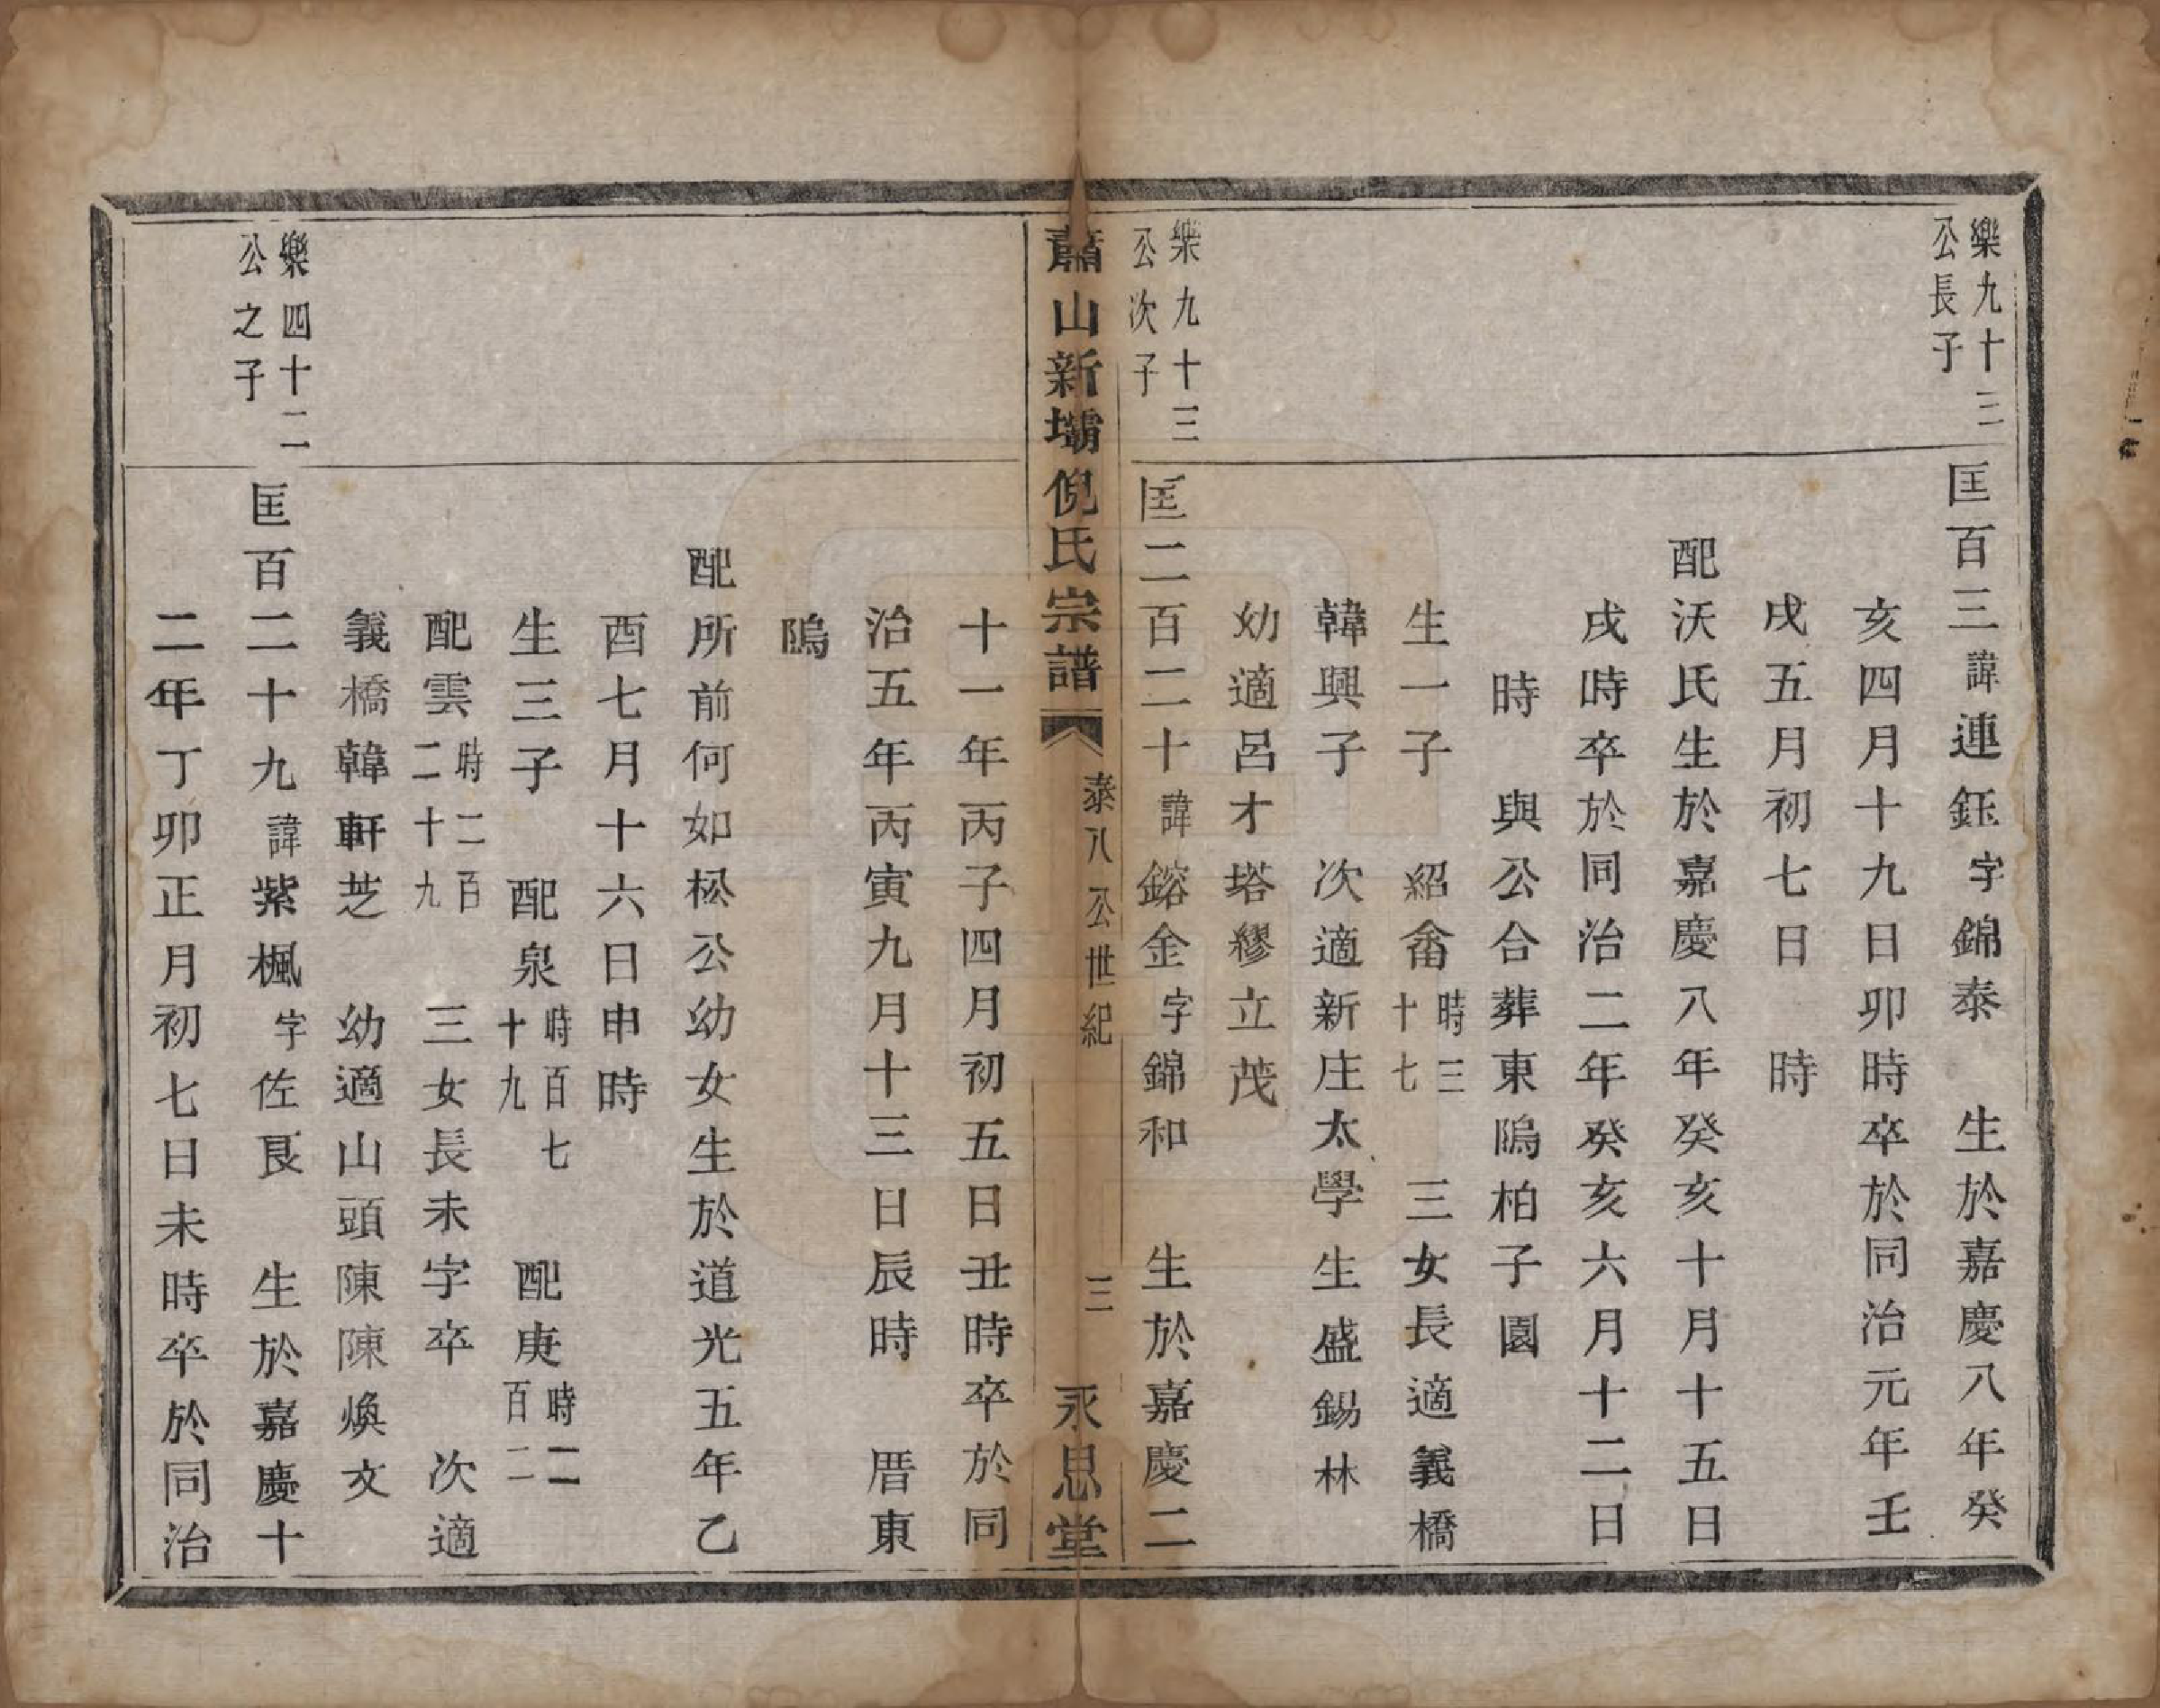 樂九十三
公長子
匡百三諱連鈺字錦泰　生於嘉慶八年癸
亥四月十九日卯時卒於同治元年壬
戌五月初七日　時
配沃氏生於嘉慶八年癸亥十月十五日
戌時卒於同治二年癸亥六月十二日
時　與公合葬東隖柏子園
生一子　紹畬時三十七　三女長適義橋
韓興子　次適新庄太學生盛錫林
幼適呂才塔繆立茂
樂九十三
公次子
匡二百二十諱鎔金字錦和　生於嘉慶二
蕭山新壩倪氏宗譜　泰八公世紀　三　永思堂
十一年丙子四月初五日丑時卒於同
治五年丙寅九月十三日辰時　厝東
隖
配所前何如松公幼女生於道光五年乙
酉七月十六日申時
生三子　配泉時百七十九　配庚時二百二
配雲時二百二十九　三女長未字卒　次適
義橋韓軒芝　幼適山頭陳陳煥文
樂四十二
公之子
匡百二十九諱紫楓字佐艮　生於嘉慶十
二年丁卯正月初七日未時卒於同治